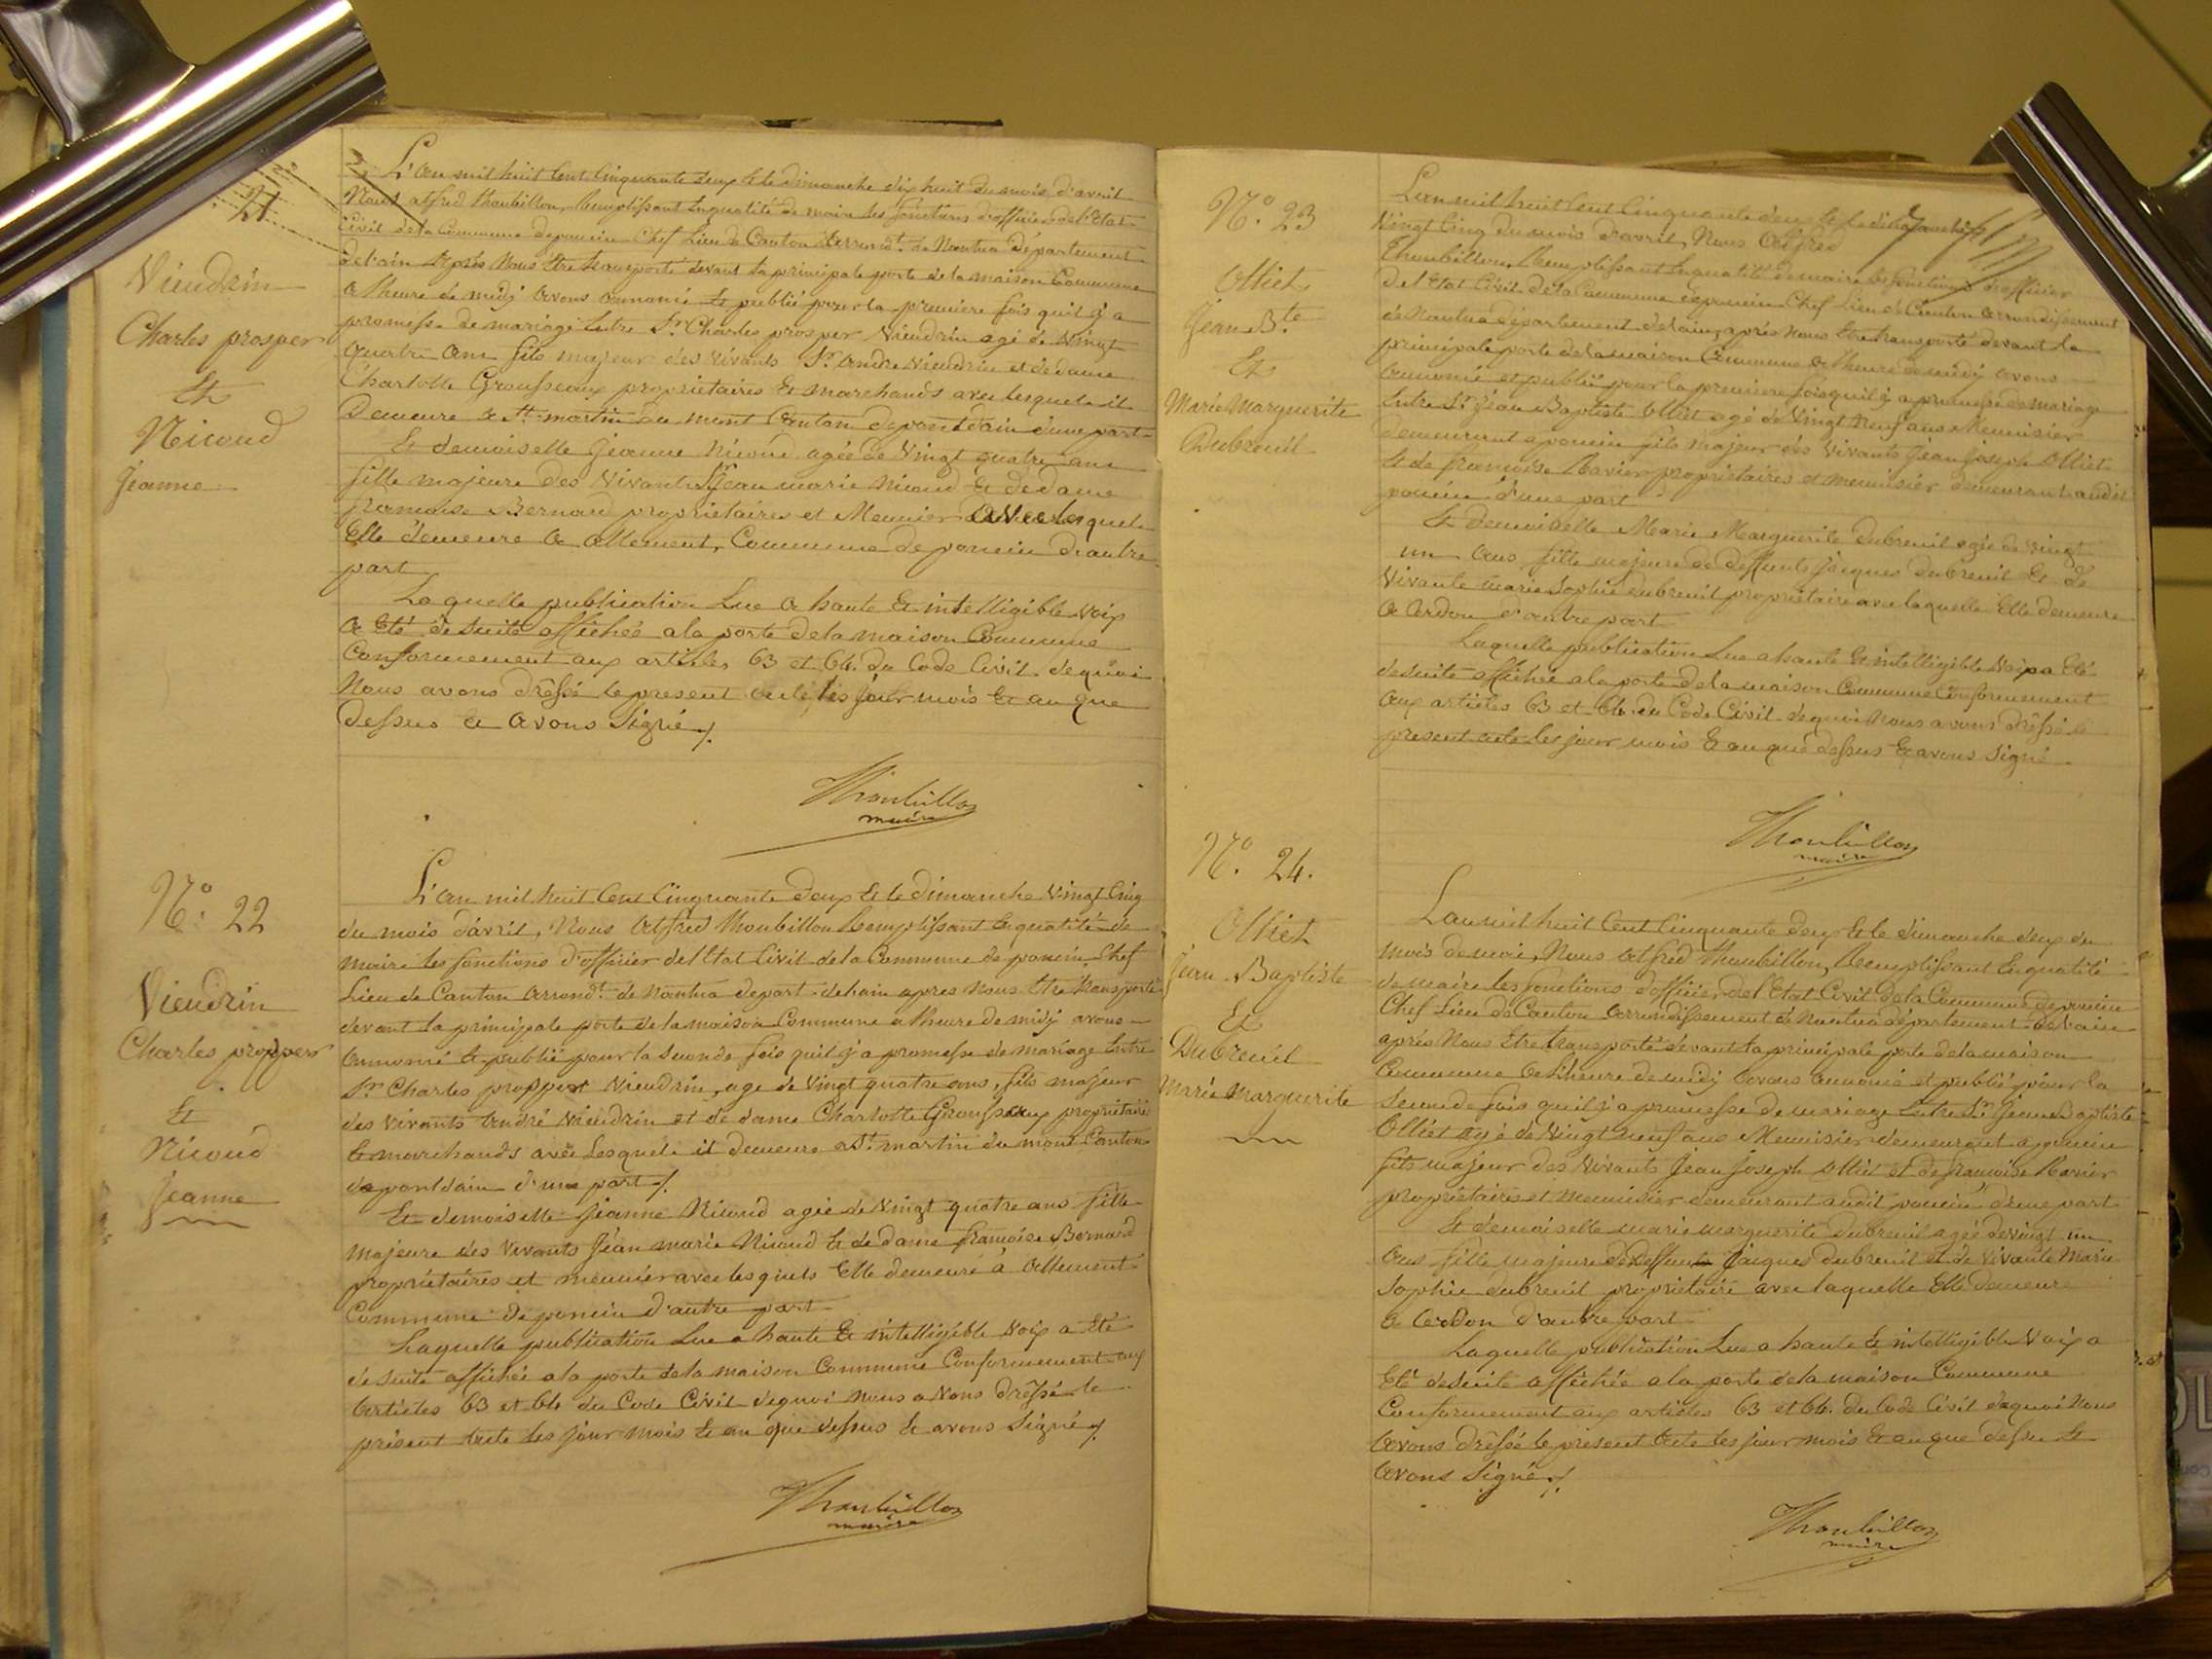 21
Vieudrin
Charles prosper
Et
Nicoud
Jeanne
L'an mil huit Cent Cinquante deux Et le dimanche dix huit du mois d'avril
Nous alfred Thoubillon, Remplissant En qualité de maire les fonctions d'officier de l'Etat
Civil de la Commune de poncin Chef Lieu de Canton Arrondt. de Nantua Département
de l'ain après Nous Etre transporté devant la principale porte de la maison Commune
a l'heure de midj avons annoncé Et publié pour la première fois quil ÿ a
promesse de mariage Entre Sr. Charles prosper Vieudrin agé de Vingt
quatre ans fils majeur des vivants Sr. andré Vieudrin et de dame
Charlotte Groussaux propriétaires Et marchands avec lesquels il
Demeure a St. martin du mont Canton de pont dain d'une part
Et demoiselle Jeanne Nicoud agée de Vingt quatre ans
fille majeure des Vivants Sr Jean marie Nicoud Et de dame
francoise Bernard propriétaires et Meunier avec lesquels
Elle demeure a allement, Commune de poncin d'autre
part
Laquelle publication Lue a haute Et intelligible Voix
a Eté de suite affichée a la porte de la maison Commune
Conformement aux articles 63 et 64. du Code Civil. de quoi
Nous avons dressé le present acte les jour mois Et an que
dessus Et avons Signé ./.
Thoubillon
maire
N°. 22
Vieudrin
Charles propper
Et
Nicoud
Jeanne
L'an mil huit Cent Cinquante deux Et le dimanche Vingt Cinq
du mois d'avril, Nous Alfred Thoubillon Remplissant En qualité de
maire les fonctions d'officier de l'Etat Civil de la Commune de poncin, Chef
Lieu de Canton Arrondt. de Nantua depart. de hain apres nous Etre transporté
devant la principale porte de la maison Commune a l'heure de midj avons
annoncé Et publié pour la Seconde fois quil ÿ a promesse de mariage Entre
Sr. Charles proppert Vieudrin, agé de Vingt quatre ans, fils majeur
des vivants André Vieudrin et de dame Charlotte Groussaux propriétaires
Et marchands avec Lesquels il demeure a St. martin du mont Canton
de pont dain d'une part ./.
Et demoiselle Jeanne Nicoud agée de Vingt quatre ans fille
majeure des Vivants Jean marie Nicoud Et de Dame francoise Bernard
propriétaires et meunier avec lesquels Elle demeure à Allement
Commune de poncin d'autre part
Laquelle publication Lue a haute Et intelligible Voix a Eté
de suite affichée a la porte de la maison Commune Conformement aux
Articles 63 et 64 du Code Civil de quoi nous avons dressé le
présent acte les jour mois Et an que dessus Et avons Signé ./.
Thoubillon
maire
N°. 23
Olliet
Jean Bte.
Et
Marie Marguerite
Dubreuil
L'an mil huit Cent Cinquante deux Et le dimanche
Vingt Cinq du mois d'avril, Nous Alfred
Thoubillon, Remplissant En qualité de maire les fonctions d'officier
de l'Etat Civil de la Commune de poncin Chef Lieu de Canton arrondissement
de Nantua département de l'ain, après Nous Etre transporté devant la
principale porte de la maison Commune a l'heure de midj avons
annoncé et publié pour la premiere fois quil ÿ a promesse de mariage
Entre Sr. Jean Baptiste Olliet agé de Vingt Neuf ans Menuisier
demeurant a poncin fils majeur des Vivants Jean Joseph Olliet
Et de francoise Ravier propriétaires et menuisier demeurant audit
poncin d'une part
Et demoiselle Marie Marguerite dubreuil agée de Vingt
un ans fille majeure de deffunt Jacques dubreuil Et de
Vivante marie Sophie dubreuil propriétaire avec laquelle Elle demeure
a Cerdon d'autre part
Laquelle publication Lue a haute Et intelligible Voix a Eté
de suite affichée a la porte de la maison Commune Conformement
aux articles 63 et 64 du Code Civil de quoi Nous avons dressé le
present acte les jour mois Et an que dessus Et avons Signé
Thoubillon
maire
N°. 24.
Olliet
Jean Baptiste
Et
Dubreuil
Marie Marguerite
L'an mil huit Cent Cinquante deux Et le dimanche deux du
mois de mai, Nous Alfred Thoubillon, Remplissant En qualité
de maire les fonctions d'officier de l'Etat Civil de la Commune de poncin
Chef Lieu de Canton Arrondissement de Nantua département de l'ain
après Nous Etre transporté devant la principale porte de la maison
Commune a L'heure de midj avons annoncé et publié pour la
Seconde fois quil ÿ a promesse de mariage Entre Sr. Jean Baptiste
Olliet agé de Vingt neuf ans Menuisier demeurant a poncin
fils majeur des Vivants Jean Joseph Olliet et de francoise Ravier
propriétaires et Menuisier demeurant audit poncin d'une part
Et demoiselle marie marguerite dubreuil agée de vingt un
ans fille majeure de deffunt Jacques dubreuil et de Vivante Marie
Sophie dubreuil propriétaire avec laquelle Elle demeure
a Cerdon d'autre part
Laquelle publication Lue a haute Et intelligible Voix a
Eté de suite affichée a la porte de la maison Commune
Conformement aux articles 63 et 64. du Code Civil de quoi Nous
avons dressé le present Acte les jour mois Et an que dessus Et
avons Signé ./.
Thoubillon
maire